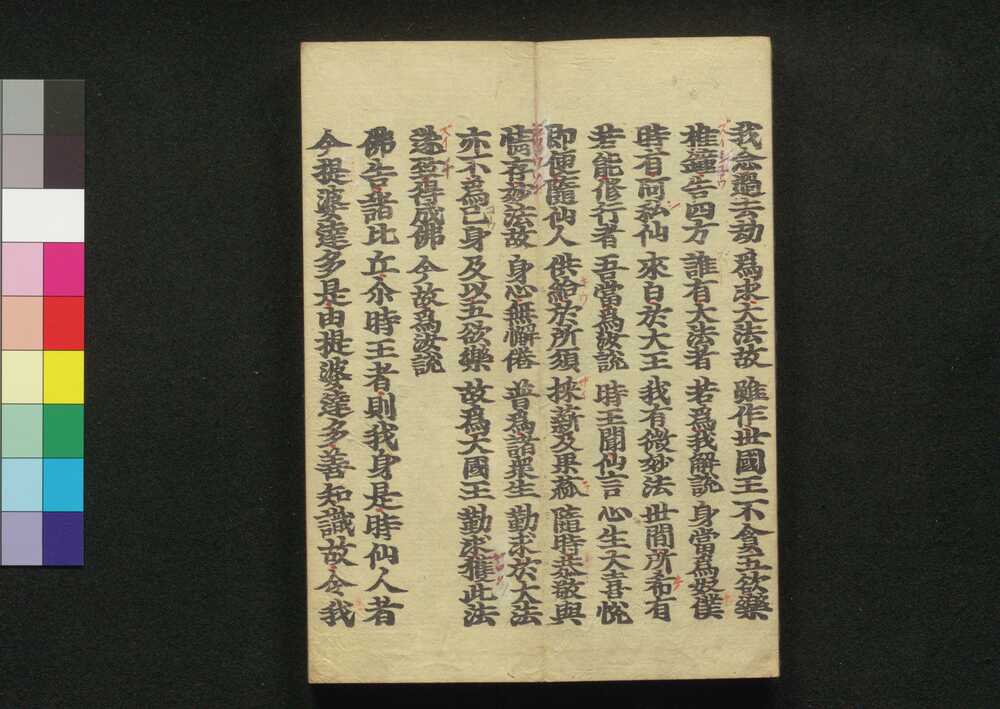 我念過去劫 為求大法故 雖作世國王 不貪五欲樂
椎鐘告四方 誰有大法者 若為我解說 身當為奴僕
時有阿私仙 來白於大王 我有微妙法 世間所希有
若能修行者 吾當為汝說 時王聞仙言 心生大喜悅
即便隨仙人 供給於所須 採薪及果蓏 隨時恭敬與
情存妙法故 身心無懈惓 普為諸眾生 勤求於大法
亦不為己身 及以五欲樂 故為大國王 勤求獲此法
遂致得成佛 今故為汝說
佛告諸比丘尒時王者則我身是時仙人者
今提婆達多是由提婆達多善知識故令我